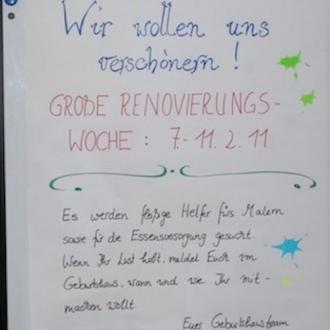 Wir wollen uns
verschönern!
GROßE RENOVIERUNGS-
WOCHE: 7-11.2.11
Es werden fleißige Helfer fürs Malern
sowie für die Essensversorgung gesucht.
Wenn Ihr Lust habt, meldet Euch im
Geburtshaus, wann und wie Ihr mit-
machen wollt.
Euer Geburtshausteam